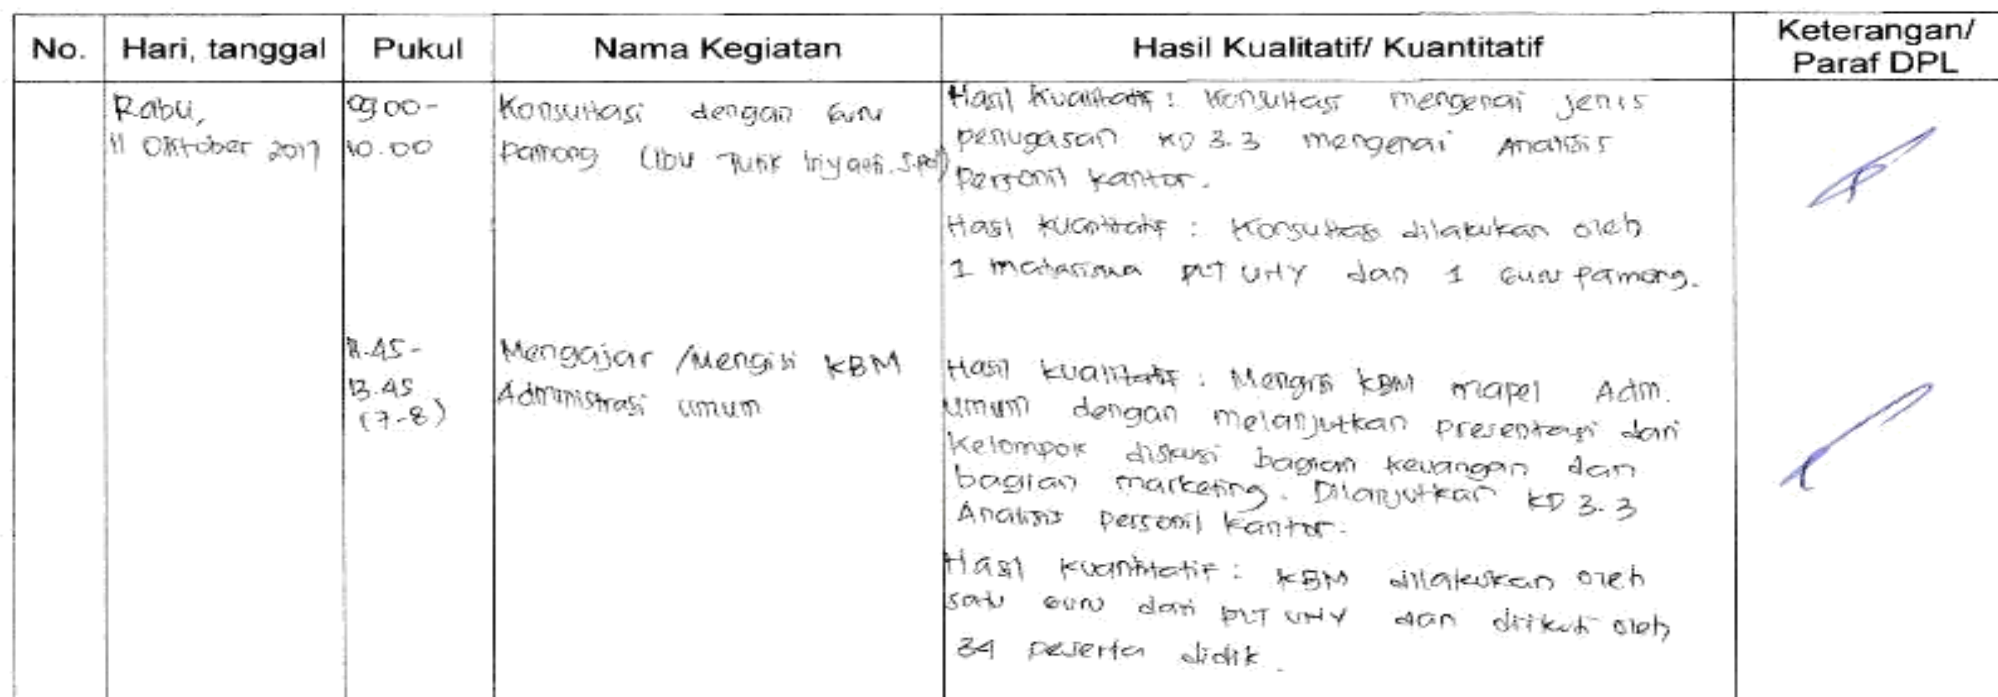 No. Hari, tanggal Pukul Nama Kegiatan Hasil Kualitatif/ Kuantitatif Keterangan/
Paraf DPL
Rabu,
11 Oktober 2017
09.00-
10.00
Konsultasi dengan Guru
Pamong (Ibu Tutik S.Pd)
Hasil Kualitatif : Konsultasi mengenai jenis
penugasan KD 3.3 mengenai Analisis
Personil kantor.
Hasil kuantitatif : Konsultasi dilakukan oleh
1 mahasiswa PLT UNY dan 1 Guru Pamong.
11.45-
13.45
(7-8)
Mengajar /Mengisi KBM
Administrasi umum
Hasil kualitatif : Mengisi KBM mapel Adm.
umum dengan melanjutkan presentasi dari
Kelompok diskusi bagian keuangan dan
bagian marketing. Dilanjutkan KD 3.3
Analisis personil kantor.
Hasil kuantitatif : KBM dilakukan oleh
satu guru dari PLT UNY dan diikuti oleh
34 peserta didik.